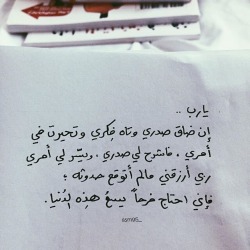 يارب ..
إن ضاق صدري وتاه فكري وتحيرت في
أمري ، فاشرح لي صدري ، ويسّر لي أمري
ربي أرزقني مالم أتوقع حدوثه ؛
فإني احتاج فرحاً يسعُ هذه الدُنيا .